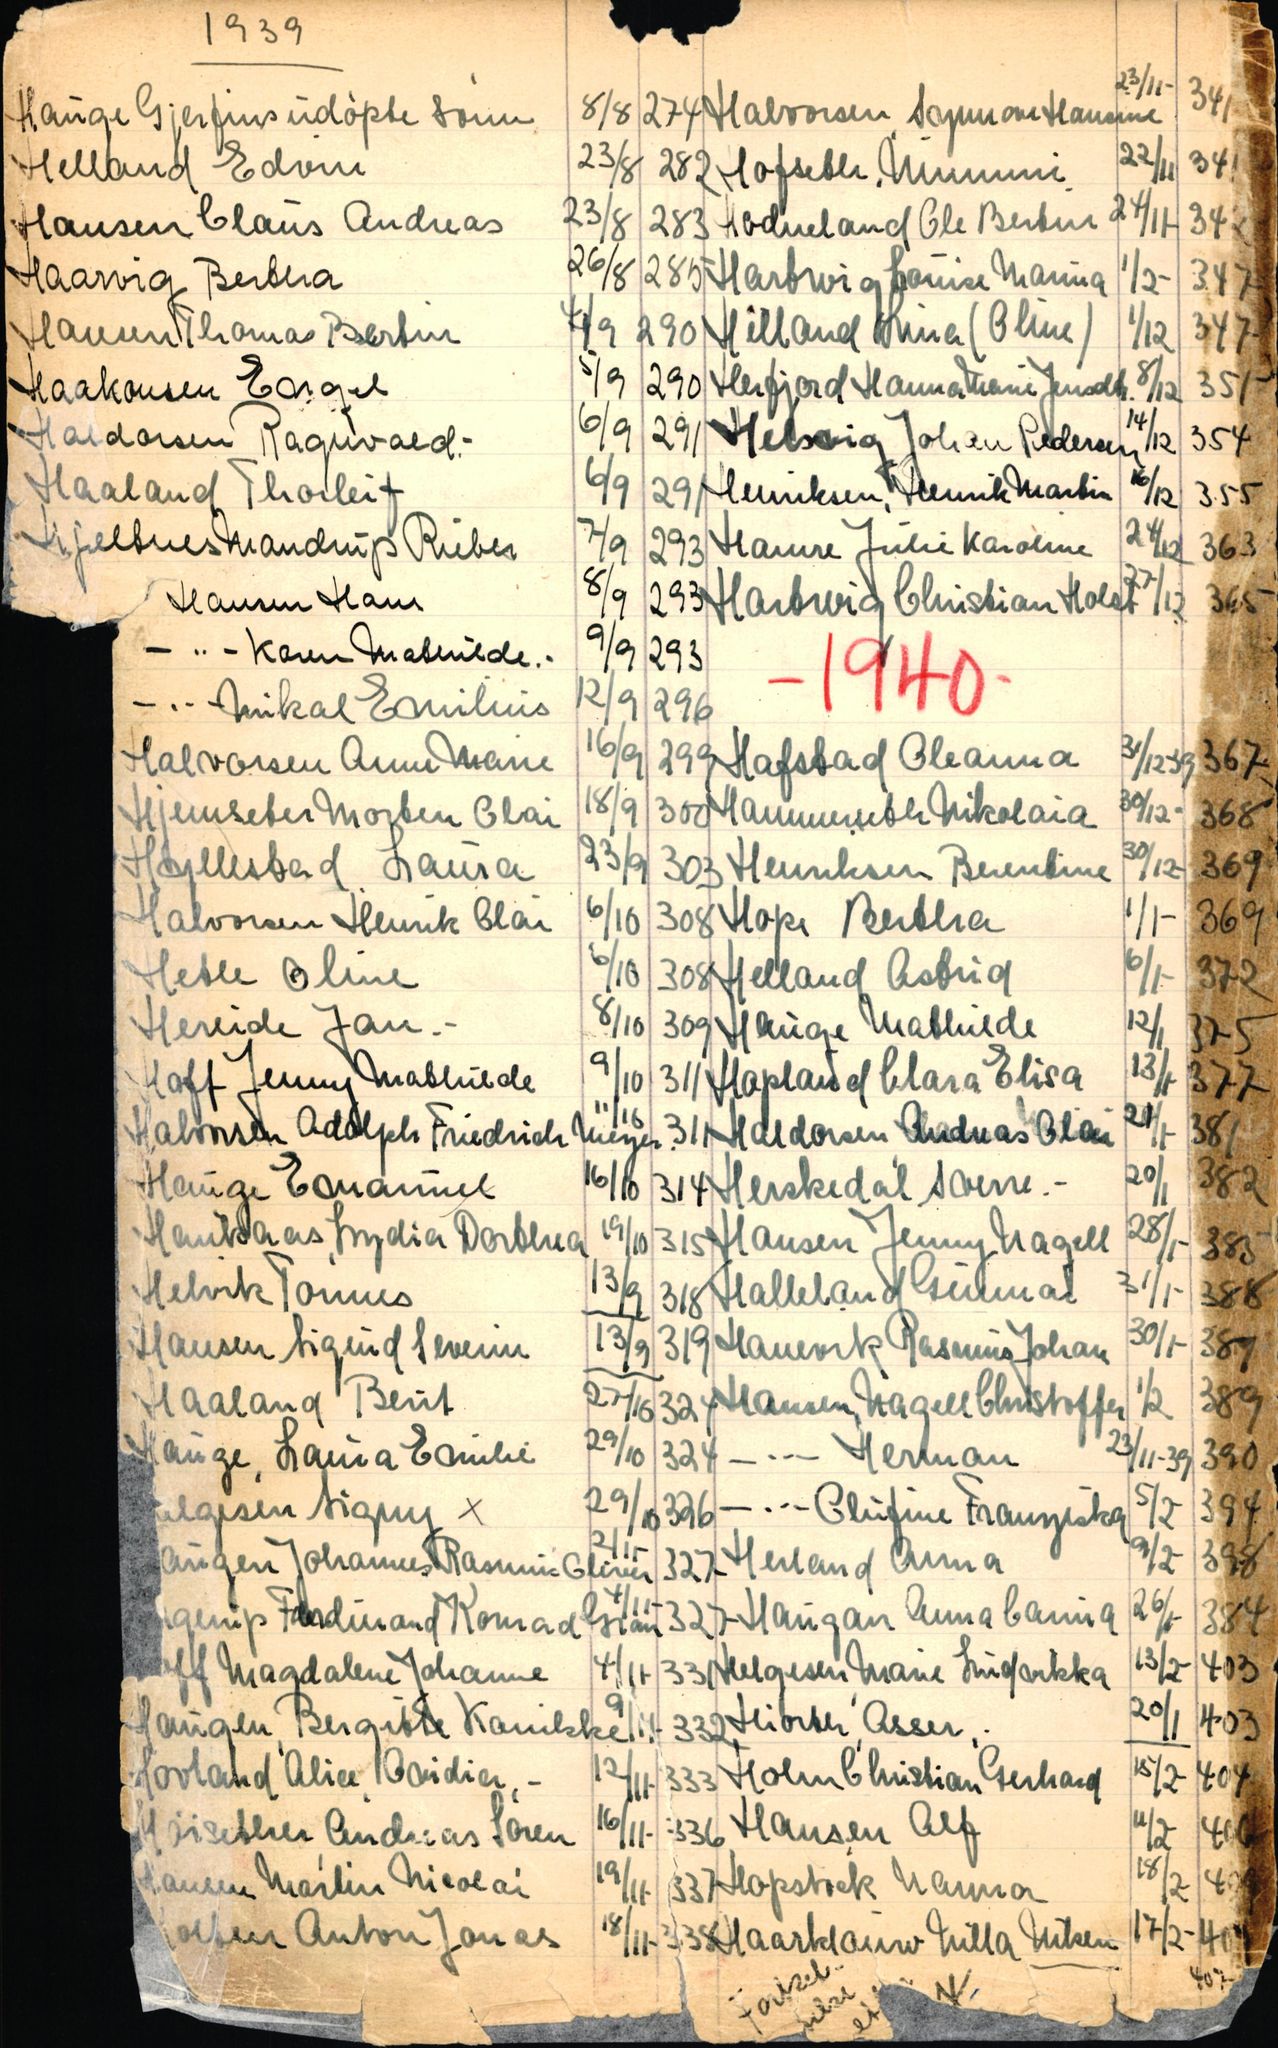 1939
Hauge Gjertrud udöpte sönn 8/8 274
Helland Edvin 23/8 282
Hansen Claus Andreas 23/8 283
Haarvig Berthea 26/8 285
Hansen Thomas Bertin 4/9 290
Haakonsen Engel 5/9 290
Haldorsen Ragnvald.- 6/9 291
Haaland Thorleif 6/9 291
Hjeltnes Mandrup Rieber 7/9 293
Hansen Hans 8/9 293
- " - Karen Mathilde.- 9/9 293
- " - Mikal Emilius 12/9 296
Halvorsen Anne Marie 16/9 299
Hjemseter Morten Olai 18/9 300
Hyllestad Laura 23/9 303
Halvorsen Henrik Olai 6/10 308
Hetle Oline 6/10 308
Hereide Jan.- 8/10 309
Hoff Jenny Mathilde 9/10 311
Halvorsen Adolph Friedrich Meyer 11/10 311
Hauge Emanuel 16/10 314
Haukaas, Lydia Dorthea 19/10 315
Helvik Tomas 13/9 318
Hansen Sigurd Severin 13/9 319
Haaland Berit 27/10 324
Hauge, Laura Emilie 29/10 324
elgesen Signy x 29/10 326
augen Johannes Rasmus Oliver 2/11- 327
gerup Ferdinand Konrad 4/11- 327
off Magdalene Johanne 4/11- 331
Haugen, Bergitte Kanikke 9/11- 332
Hovland Alice Ovidia,- 12/11- 333
Höisether Andreas Sören 16/11- 336
Hansen Martin Nicolai 19/11- 337
Anton Jonas 18/11- 338
Halvorsen, Hansine 23/11- 341
Hofseth, Mimmi 22/11 341
Hodneland Ole Bertin 24/11- 342
Hartwig Louise Marina 1/2- 347
Hilland Stina (Oline) 1/12 347
Herfjord Hanna Marie Jensdtr. 8/12 351
Helsvig Johan Pedersen 14/12 354
Henriksen, Henrik Martin 16/12 355
Hamre Julie Karoline 24/12 363
Hartwig Christian Holst 27/12 365
-1940-
Hafstad Oleanna 31/12-39 367
Hammerseth Nikolaia 30/12- 368
Henriksen Berentine 30/12- 369
Hope Berthea 1/1- 369
Helland Astrid 6/1- 372
Hauge Mathilde 12/1 375
Hopland Clara Elisa 13/1- 377
Haldorsen Andreas Olai 21/1- 381
Herskedal Sverre.- 20/1 382
Hansen Jenny Nagell 28/1- 385
Halleland Gunnar 31/1- 388
Hanevik Rasmus Johan 30/1- 387
Hansen, Nagell Christoffer 1/2 389
- " - Herman 23/11-39 390
- " - Olufine Franziska 5/2 394
Herland Anna 9/2- 398
Haugan Anna Carina 26/1- 384
Helgesen Marie Lindvikka 13/2- 403
Hiorth, Asser,. 20/1 403
Holm Christian Gerhard 15/2- 404
Hansen Alf 11/2-
Hopstock Nanna 18/2
Haarklouw Milla Mitsen 17/2-
407
Fortset-